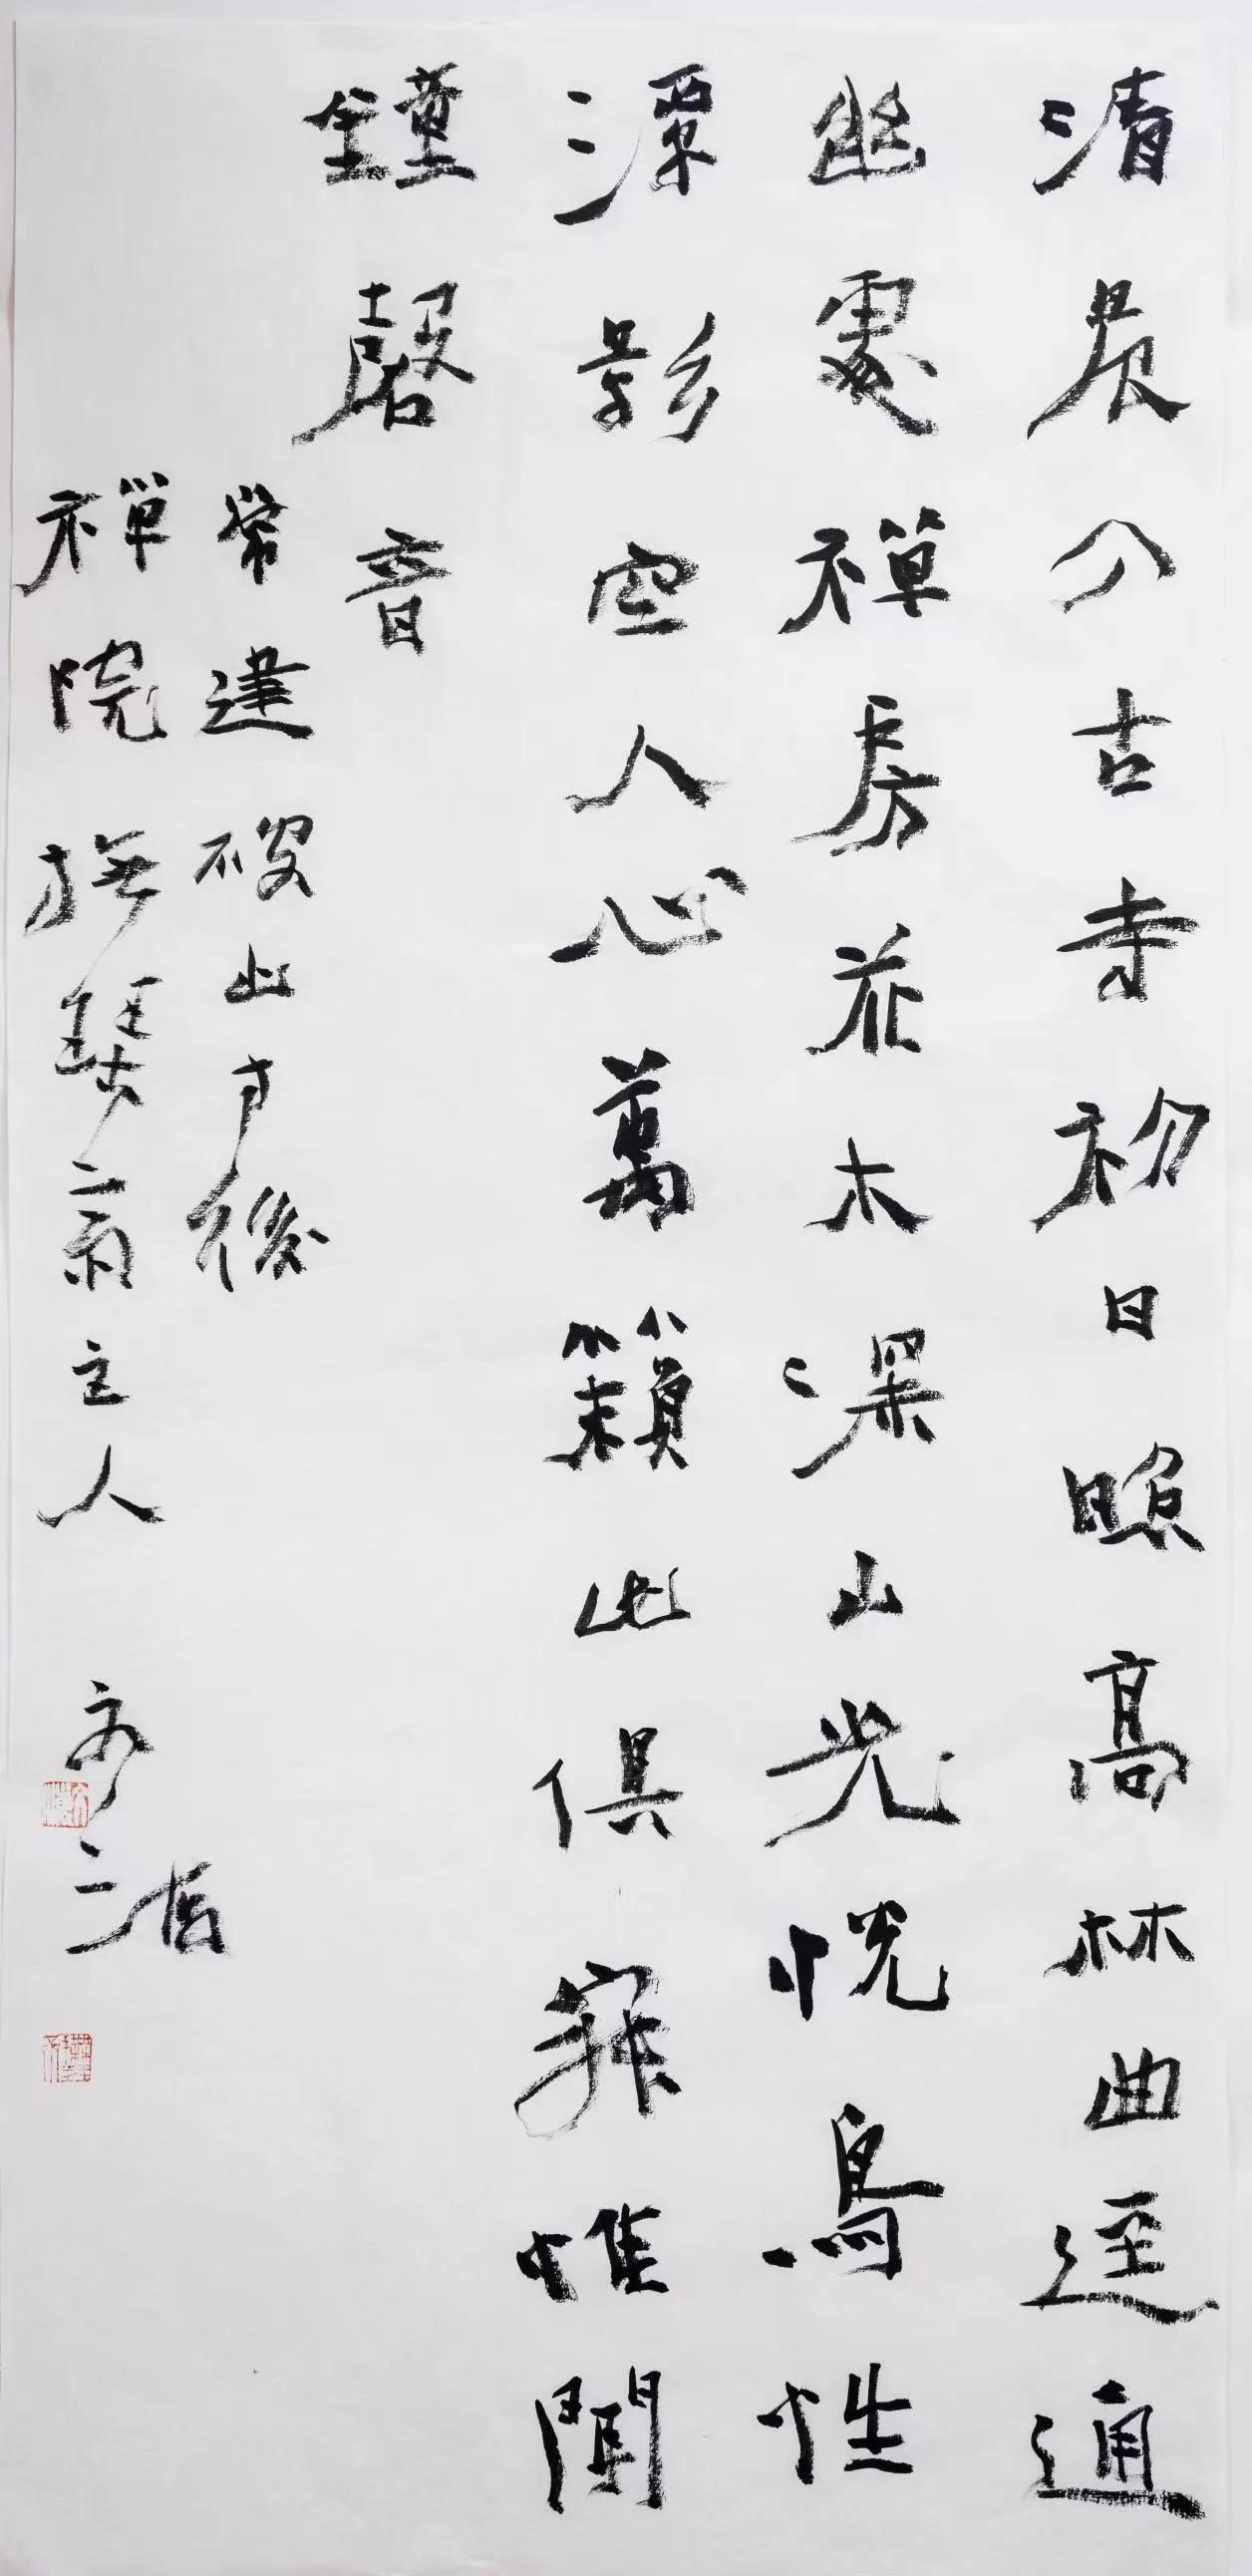 清晨入古寺初日照高林曲逕通
幽處禪房花木深山光悅鳥性
潭影空人心萬籟此俱寂惟聞
鐘磬音
常建破山寺後
禪院撫琴齋主人